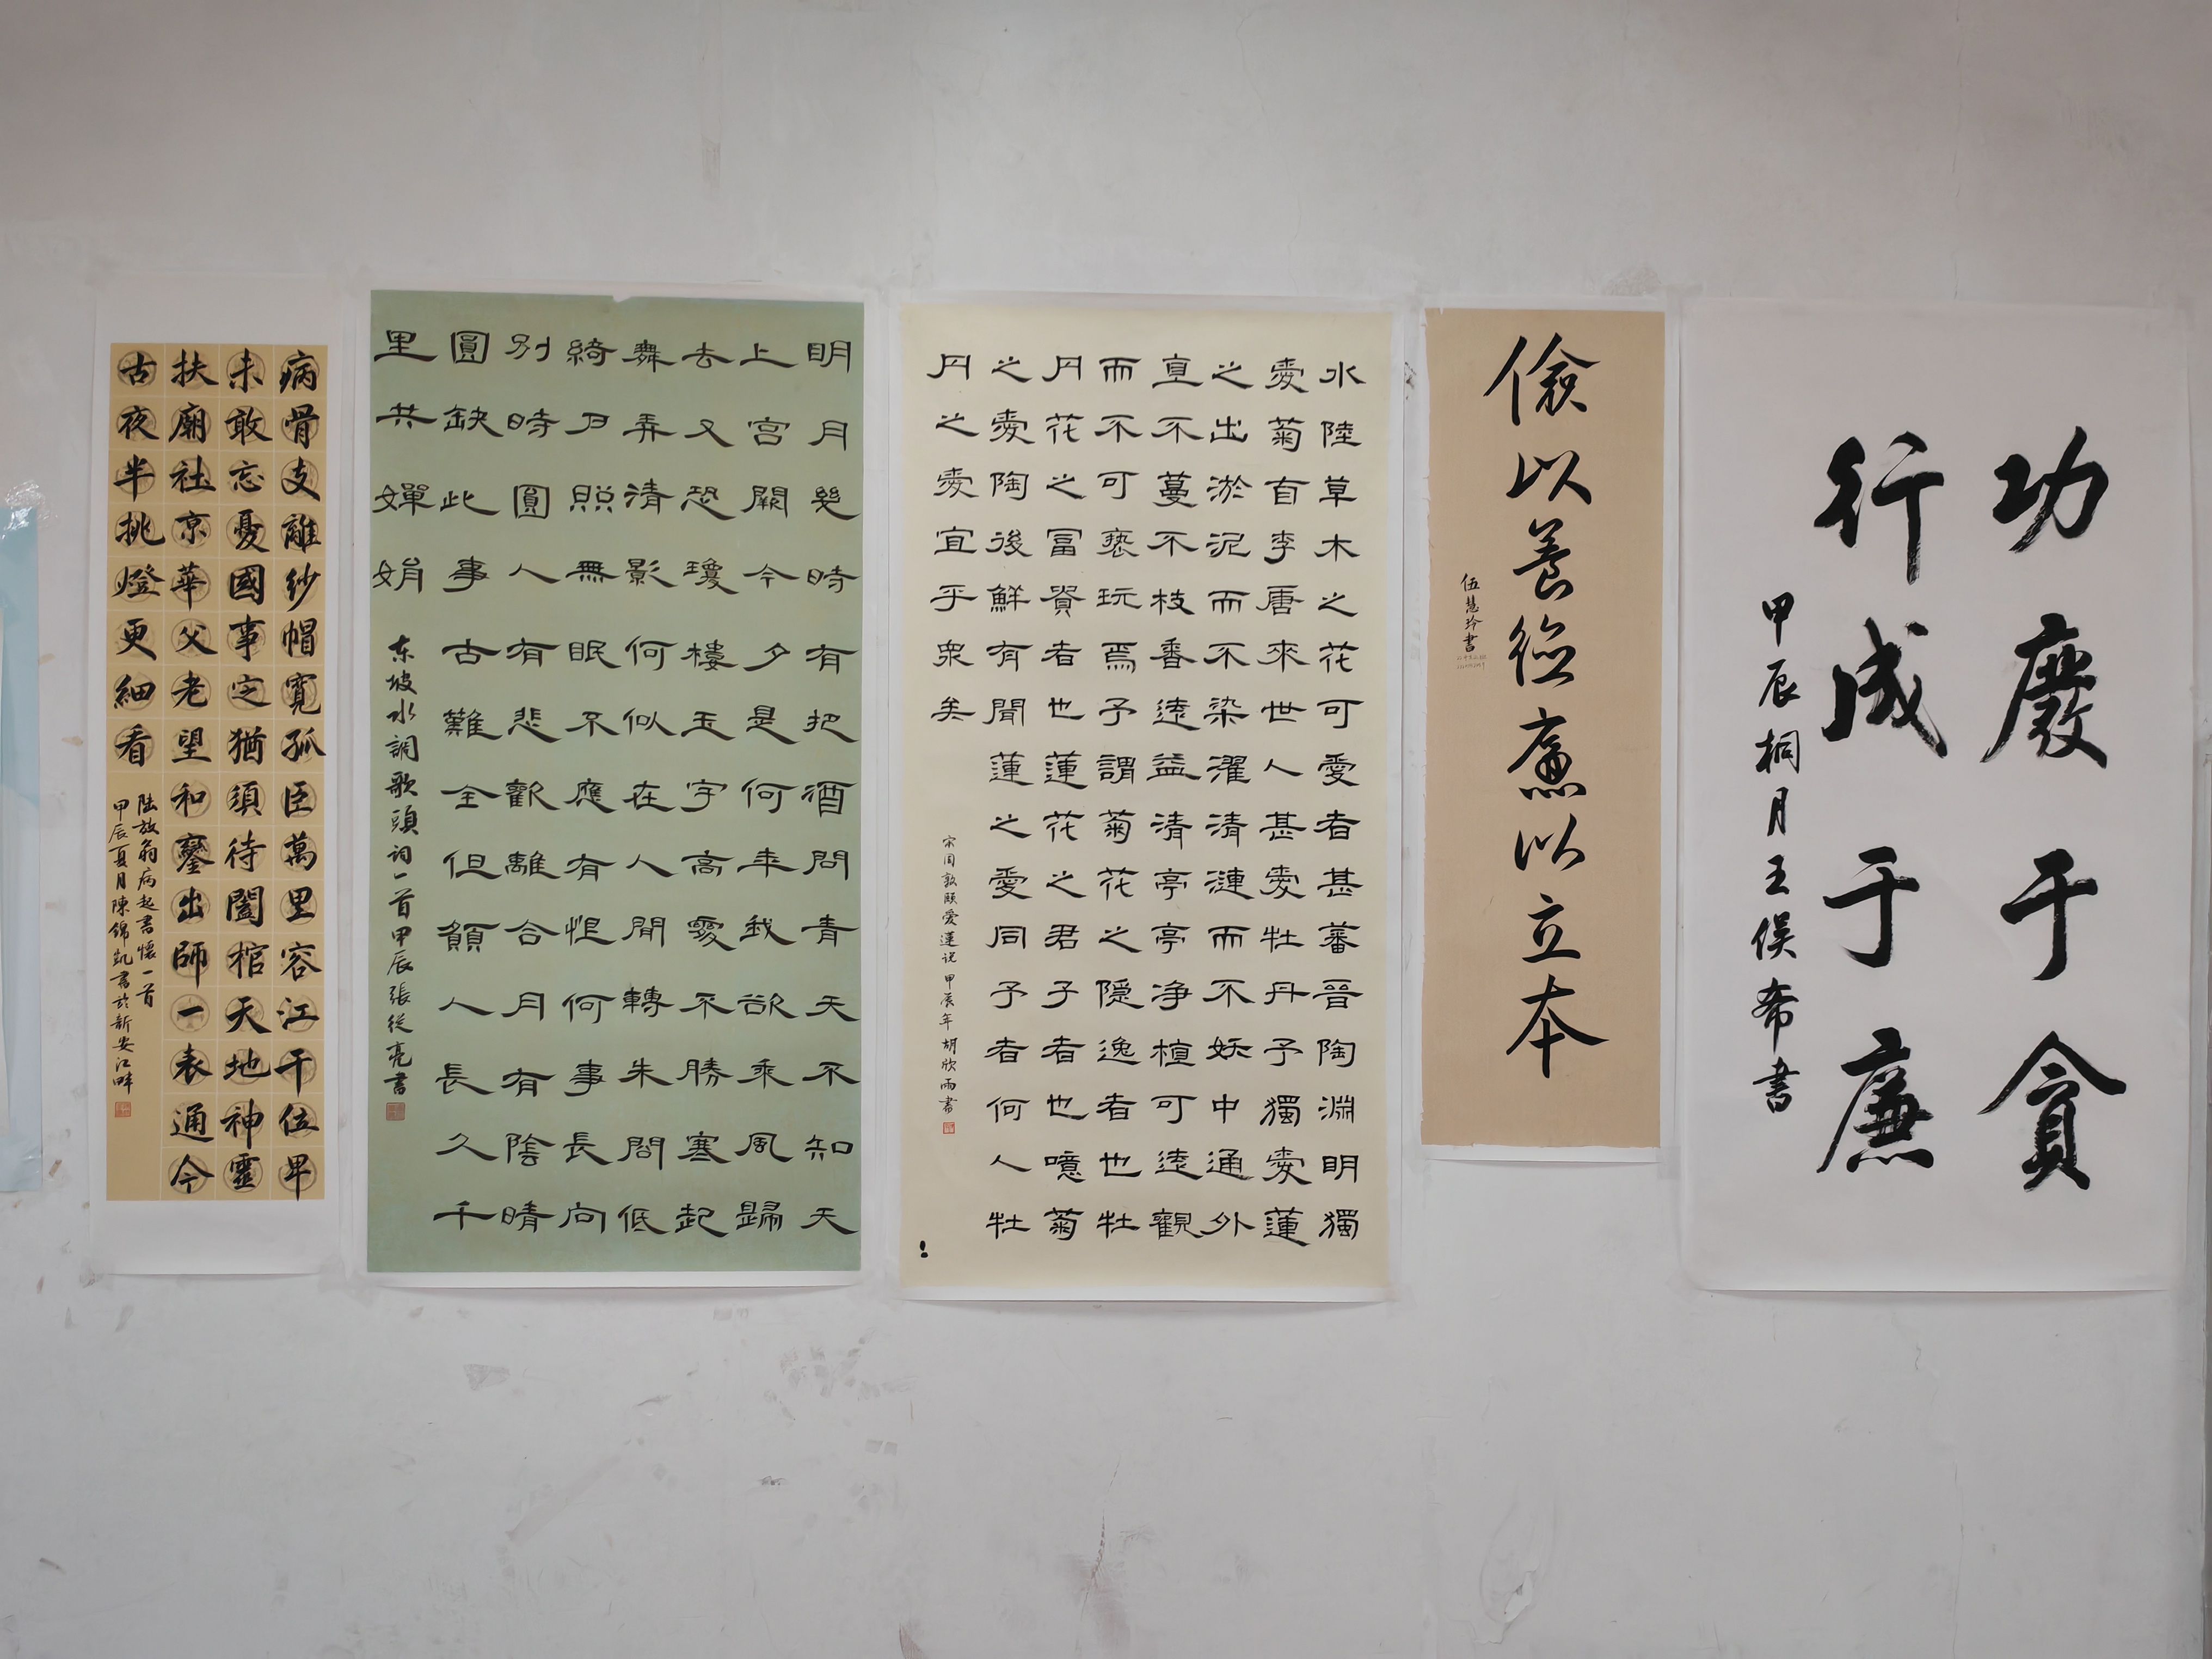 功廢于貪
行成于廉
甲辰桐月王俣希書
儉以養德廉以立本
伍慧玲書
水陸草木之花可愛者甚蕃晉陶淵明獨
愛菊自李唐來世人甚愛牡丹予獨愛蓮
之出淤泥而不染濯清漣而不妖中通外
直不蔓不枝香遠益清亭亭净植可遠觀
而不可褻玩焉予謂菊花之隱逸者也牡
丹花之冨貴者也蓮花之君子者也噫菊
之愛陶後鮮有聞蓮之愛同予者何人牡
丹之愛宜乎衆矣
宋周敦頤愛蓮説甲辰年胡欣雨書
明月幾時有把酒問青天不知天
上宫闕今夕是何年我欲乘風歸
去又恐瓊樓玉宇高處不勝寒起
舞弄清影何似在人間轉朱閣低
綺户照無眠不應有恨何事長向
别時圓人有悲歡離合月有陰晴
圓缺此事古難全但願人長久千
里共嬋娟
东坡水調歌頭词一首甲辰張從亮書
病骨支離紗帽寬孤臣萬里客江干位卑
未敢忘憂國事定猶須待闔棺天地神靈
扶廟社京華父老望和鑾出師一表通今
古夜半挑燈更細看
陆放翁病起書懷一首
甲辰夏月陳錦凱書於新安江畔